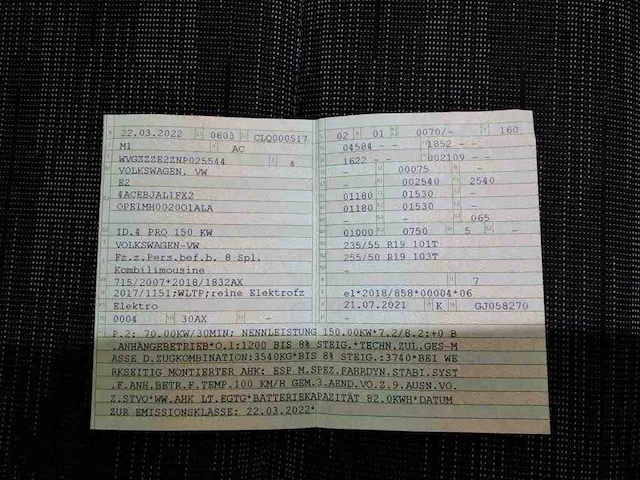 22.03.2022 0603 CLQ000517
M1 AC
WVGZZZE2ZNP025544 4
VOLKSWAGEN, VW
E2
4ACEBJAL1FX2
OPE1MH002001ALA
ID.4 PRO 150 KW
VOLKSWAGEN-VW
Fz.z.Pers.bef.b. 8 Spl.
Kombilimousine
715/2007*2018/1832AX
2017/1151;WLTP;reine Elektrofz
Elektro
0004 30AX -
02 01 0070/- 160
04584 - - 1852 - -
1622 - - 002109 - -
- 00075 -
- 002540 2540
01180 01530 -
01180 01530 -
- - 065
01000 0750 5 -
235/55 R19 101T
255/50 R19 103T
-
- 7
e1*2018/858*00004*06
21.07.2021 K GJ058270
-
P.2: 70.00KW/30MIN; NENNLEISTUNG 150.00KW*7.2/8.2:+0 B
.ANHÄNGEBETRIEB*O.1:1200 BIS 8% STEIG.*TECHN.ZUL.GES-M
ASSE D.ZUGKOMBINATION:3540KG*BIS 8% STEIG.:3740*BEI WE
RKSEITIG MONTIERTER AHK: ESP M.SPEZ.FAHRDYN.STABI.SYST
.F.ANH.BETR.F.TEMP.100 KM/H GEM.3.AEND.VO.Z.9.AUSN.VO.
Z.STVO*WW.AHK LT.EGTG*BATTERIEKAPAZITÄT 82.0KWH*DATUM
ZUR EMISSIONSKLASSE: 22.03.2022*